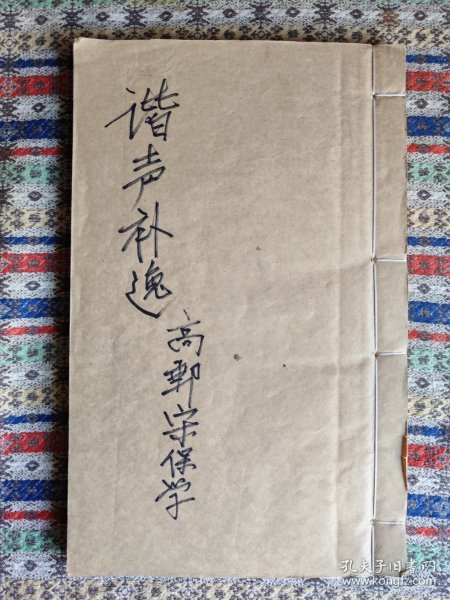 谐声补逸
高邮宋保学
孔夫子旧书网
www.kongfz.com